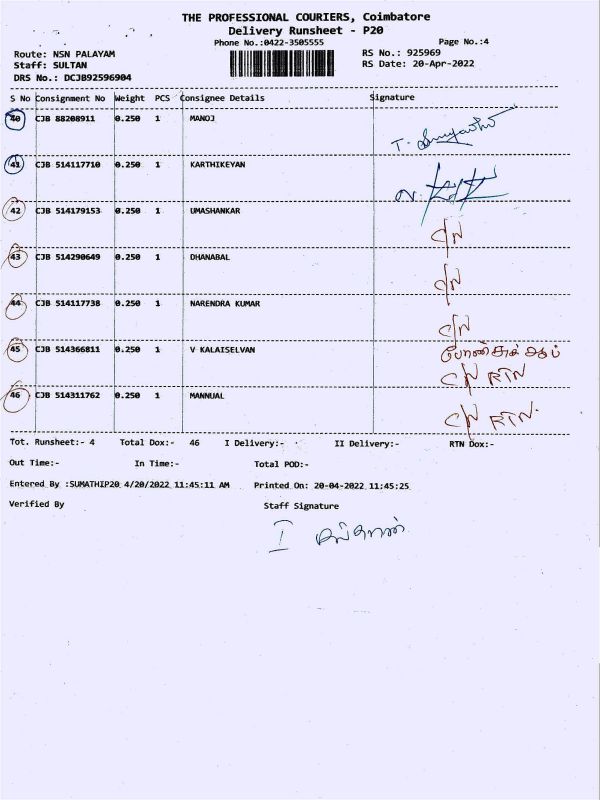 THE PROFESSIONAL COURIERS, Coimbatore
Delivery Runsheet - P20
Phone No.:0422-3505555 Page No.:4
Route: NSN PALAYAM RS No.: 925969
Staff: SULTAN RS Date: 20-Apr-2022
DRS No.: DCJB92596904
S No Consignment No Weight PCS Consignee Details Signature
40 CJB 88208911 0.250 1 MANOJ
T.
41 CJB 514117710 0.250 1 KARTHIKEYAN
N.
42 CJB 514179153 0.250 1 UMASHANKAR
C/N
43 CJB 514290649 0.250 1 DHANABAL
C/N
44 CJB 514117738 0.250 1 NARENDRA KUMAR
C/N
45 CJB 514366811 0.250 1 V KALAISELVAN
C/N RTN
46 CJB 514311762 0.250 1 MANNUAL
C/N RTN.
Tot. Runsheet:- 4 Total Dox:- 46 I Delivery:- II Delivery:- RTN Dox:-
Out Time:- In Time:- Total POD:-
Entered By :SUMATHIP20 4/20/2022 11:45:11 AM Printed On: 20-04-2022 11:45:25
Verified By Staff Signature
I சுல்தான்